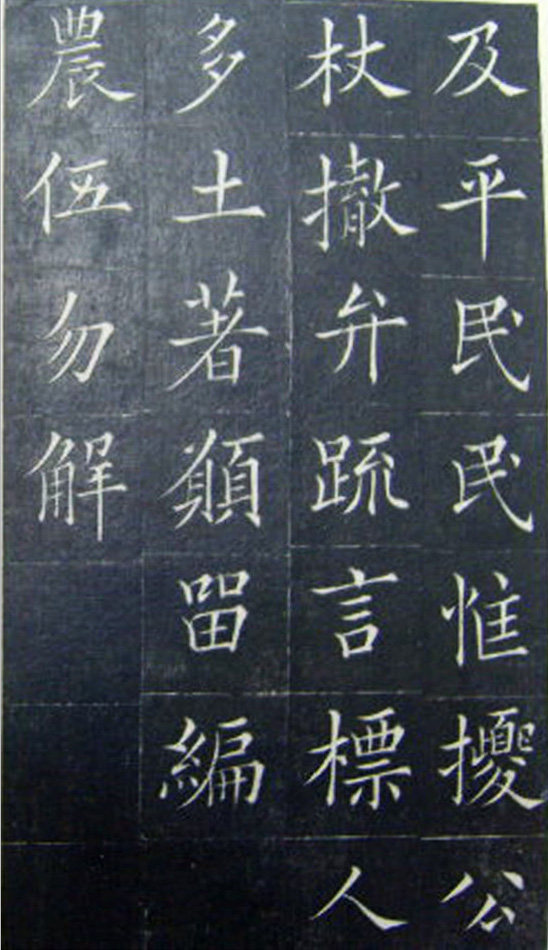 及平民民惟擾公
杖撤弁疏言標人
多土著顧留編
農伍勿解